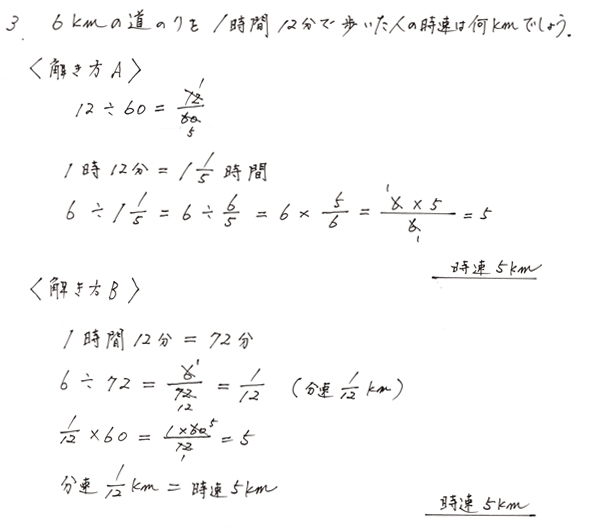 3. 6kmの道のりを1時間12分で歩いた人の時速は何kmでしょう。
〈解き方A〉
12÷60=12/60 1 5
1時12分=1 1/5時間
6÷1 1/5=6÷6/5=6×5/6=6×5/6 1 1=5
時速5km
〈解き方B〉
1時間12分=72分
6÷72=6/72 1 12=1/12 (分速1/12km)
1/12×60=1×60/12 5 1=5
分速1/12km=時速5km
時速5km